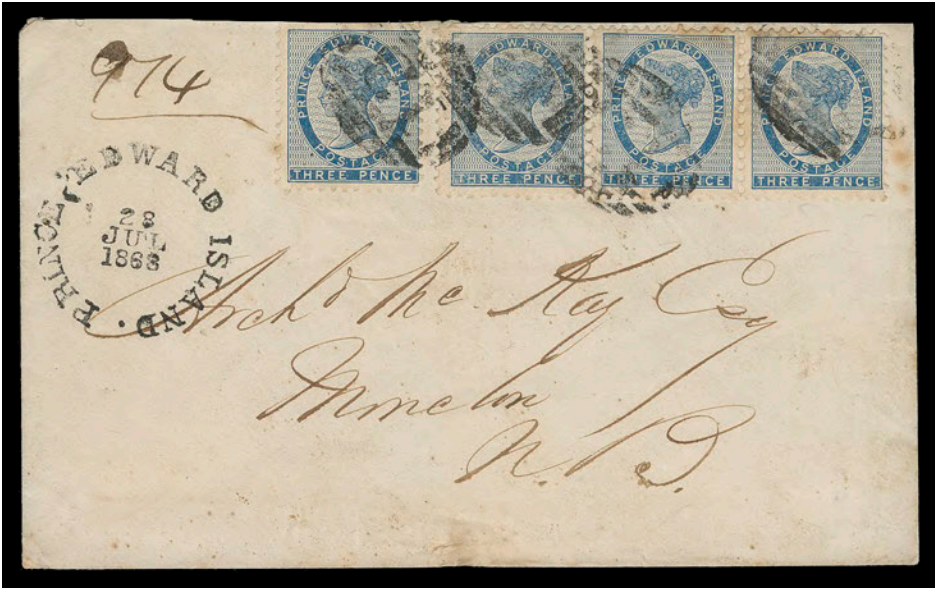 974
PRINCE EDWARD ISLAND
POSTAGE
THREE PENCE
PRINCE EDWARD ISLAND
POSTAGE
THREE PENCE
PRINCE EDWARD ISLAND
POSTAGE
THREE PENCE
PRINCE EDWARD ISLAND
POSTAGE
THREE PENCE
PRINCE EDWARD ISLAND
28
JUL
1868
Archd Mc Kay Esq
Moncton
N. B.